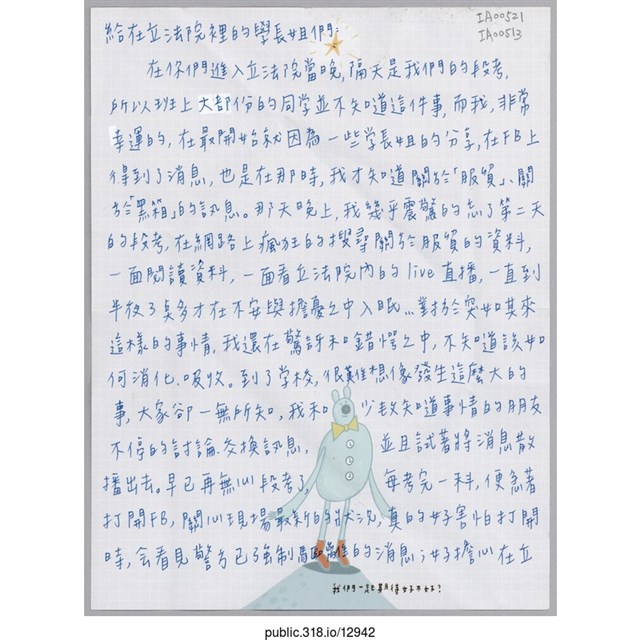 IA00521
IA00513
給在立法院裡的學長姐們:
在你們進入立法院當晚,隔天是我們的段考,
所以班上大部份的同学並不知道這件事,而我,非常
幸運的,在最開始就因為一些学長姐的分享,在FB上
得到了消息,也是在那時,我才知道關於「服貿」、關
於「黑箱」的訊息。那天晚上,我幾乎震驚的忘了第二天
的段考,在網路上瘋狂的搜尋關於服貿的資料,
一面閱讀資料,一面看立法院內的live直播,一直到
半夜了桌多才在不安與擔憂之中入眠...對於突如其來
這樣的事情,我還在驚訝和錯愕之中,不知道該如
何消化、吸收。到了学校,很難想像發生這麼大的
事,大家卻一無所知,我和少數知道事情的朋友
不停的討論、交換訊息,並且試著將消息散
播出去。早已再無心段考了,每考完一科,便急著
打開FB,關心現場最新的狀況,真的好害怕打開
時,會看見警方已強制驅離的消息;好擔心在立
我們一起期待好不好?
public.318.io/12942